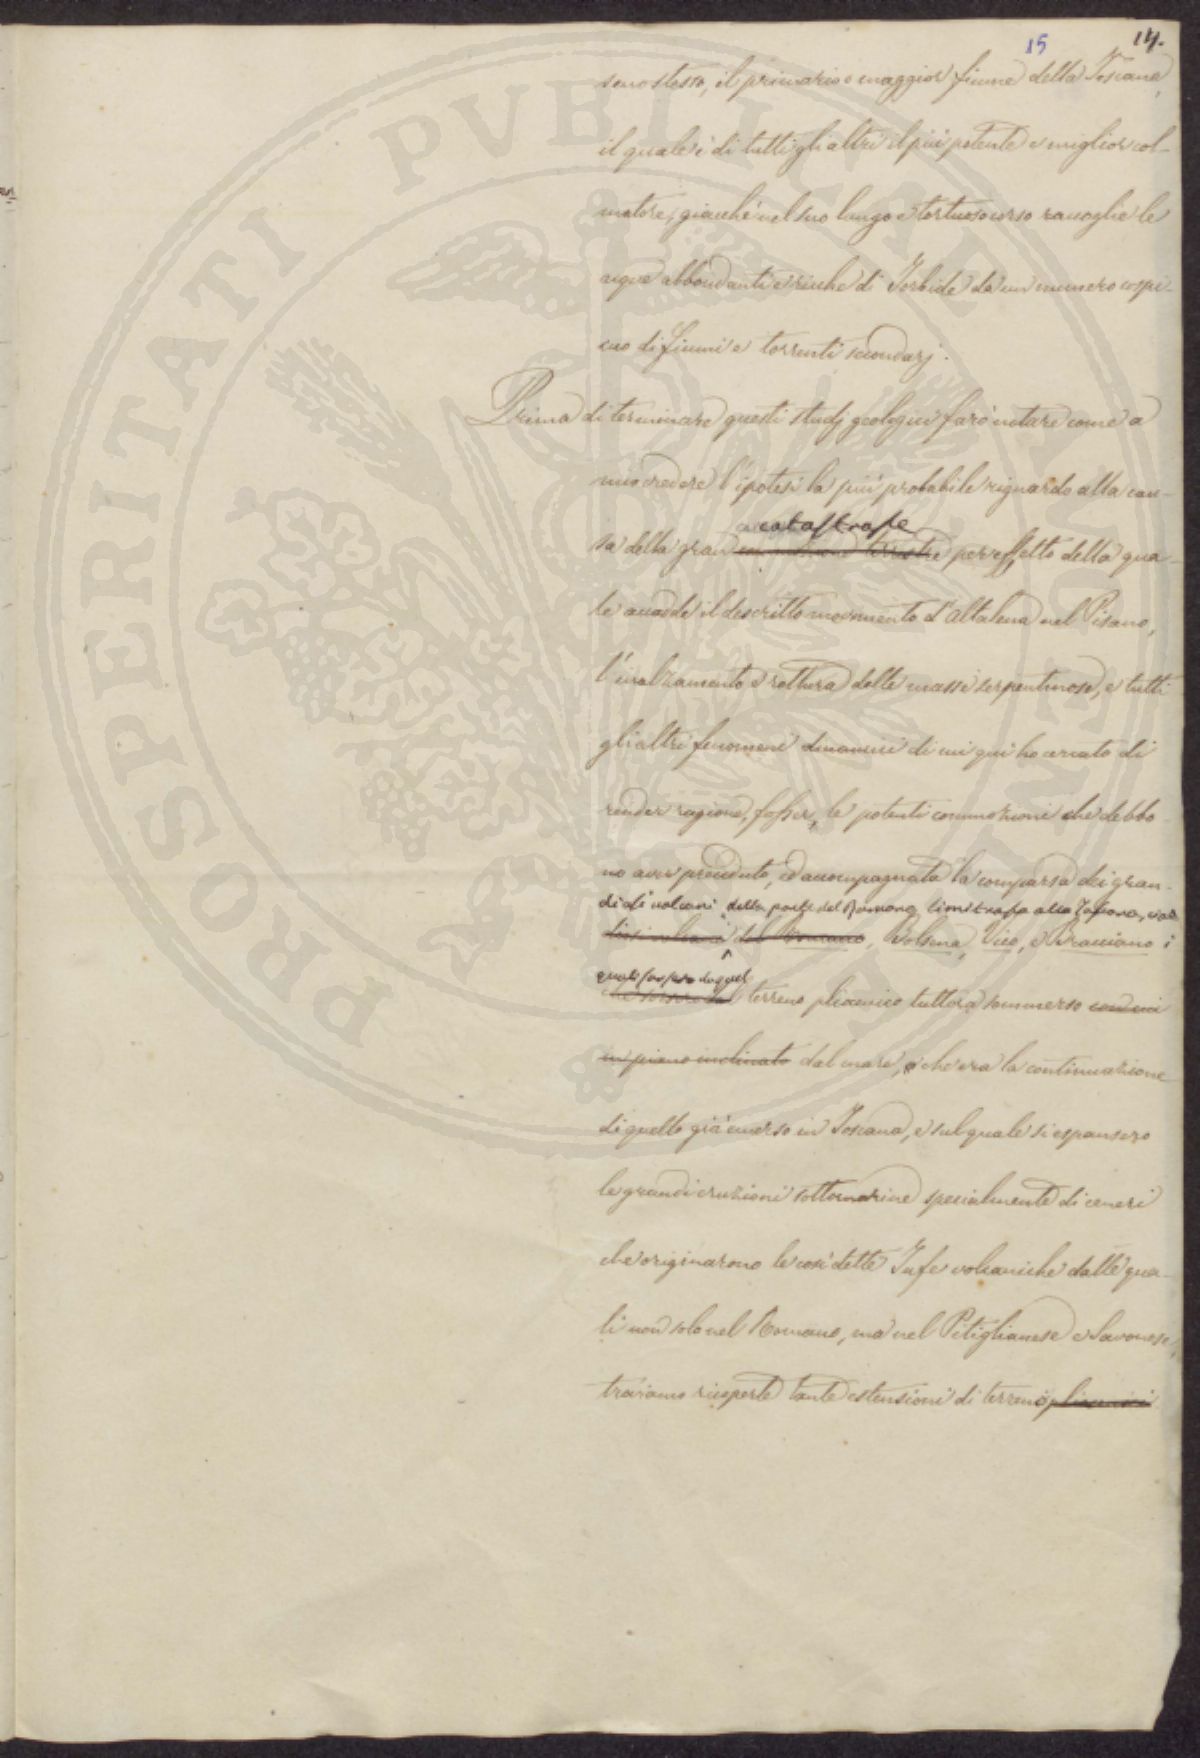 15 14.
seno stesso, il primario e maggior fiume della Toscana,
il quale è di tutti gli altri il più potente e miglior col-
matore, giacché nel suo lungo e tortuoso corso raccoglie le
acque abbondanti e ricche di Torbide da un numero cospi-
cuo di fiumi e torrenti secondarj.
Prima di terminare questi studj geologici farò notare come a
mio credere l'ipotesi la più probabile riguardo alla cau-
catastrofe
sa della gran terrestre per effetto della qua-
le accadde il descritto movimento d'altalena nel Pisano,
l'inalzamento e rottura delle masse serpentinose, e tutti
gli altri fenomeni dinamici di cui qui ho cercato di
render ragione, fosser, le potenti commozioni che debbo-
no aver preceduto, ed accompagnata la comparsa dei gran-
diosi volcani della parte del Romano limitrofa alla Toscana, cioè
diosi volcani del Romano, Bolsena, Vico, e Bracciano i
quali sorsero da quel
che sorsero dal terreno pliocenico tuttora sommerso
in piano inclinato dal mare, che era la continuazione
di quello già emerso in Toscana, e sul quale si espansero
le grandi eruzioni sottomarine specialmente di ceneri
che originarono le così dette Tufe volcaniche dalle qua-
li non solo nel Romano, ma nel Pitiglianese e Savonese,
troviamo ricoperte tante estensioni di terreni pliocenici
PROSPERITATI PUBLICAE